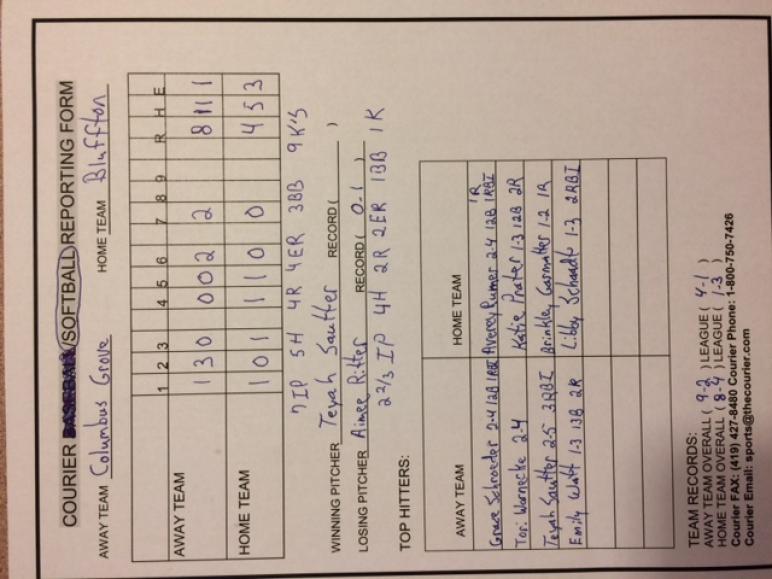 COURIER /SOFTBALL REPORTING FORM
AWAY TEAM Columbus Grove HOME TEAM Bluffton
1 2 3 4 5 6 7 8 9 R H E
AWAY TEAM 1 3 0 0 0 2 2 8 11 1
HOME TEAM 1 0 1 1 1 0 0 4 5 3
7 IP 5H 4R 4ER 3BB 9 K's
WINNING PITCHER Teyah Sautter RECORD ( )
LOSING PITCHER Aimee Ritter RECORD ( 0-1 )
2 2/3 IP 4H 2R 2ER 1BB 1K
TOP HITTERS:
AWAY TEAM HOME TEAM
Grace Schroeder 2-4 12B 1RBI Averey Rumer 2-4 12B 1RBI 1R
Tori Warnecke 2-4 Katie Prater 1-3 12B 2R
Teyah Sautter 2-5 3RBI Brinkley Garmatter 1-2 1R
Emily Watt 1-3 13B 2R Libby Schaadt 1-3 2RBI
TEAM RECORDS:
AWAY TEAM OVERALL ( 9-2 ) LEAGUE ( 4-1 )
HOME TEAM OVERALL ( 8-4 ) LEAGUE ( 1-3 )
Courier FAX: (419) 427-8480 Courier Phone: 1-800-750-7426
Courier Email: sports@thecourier.com